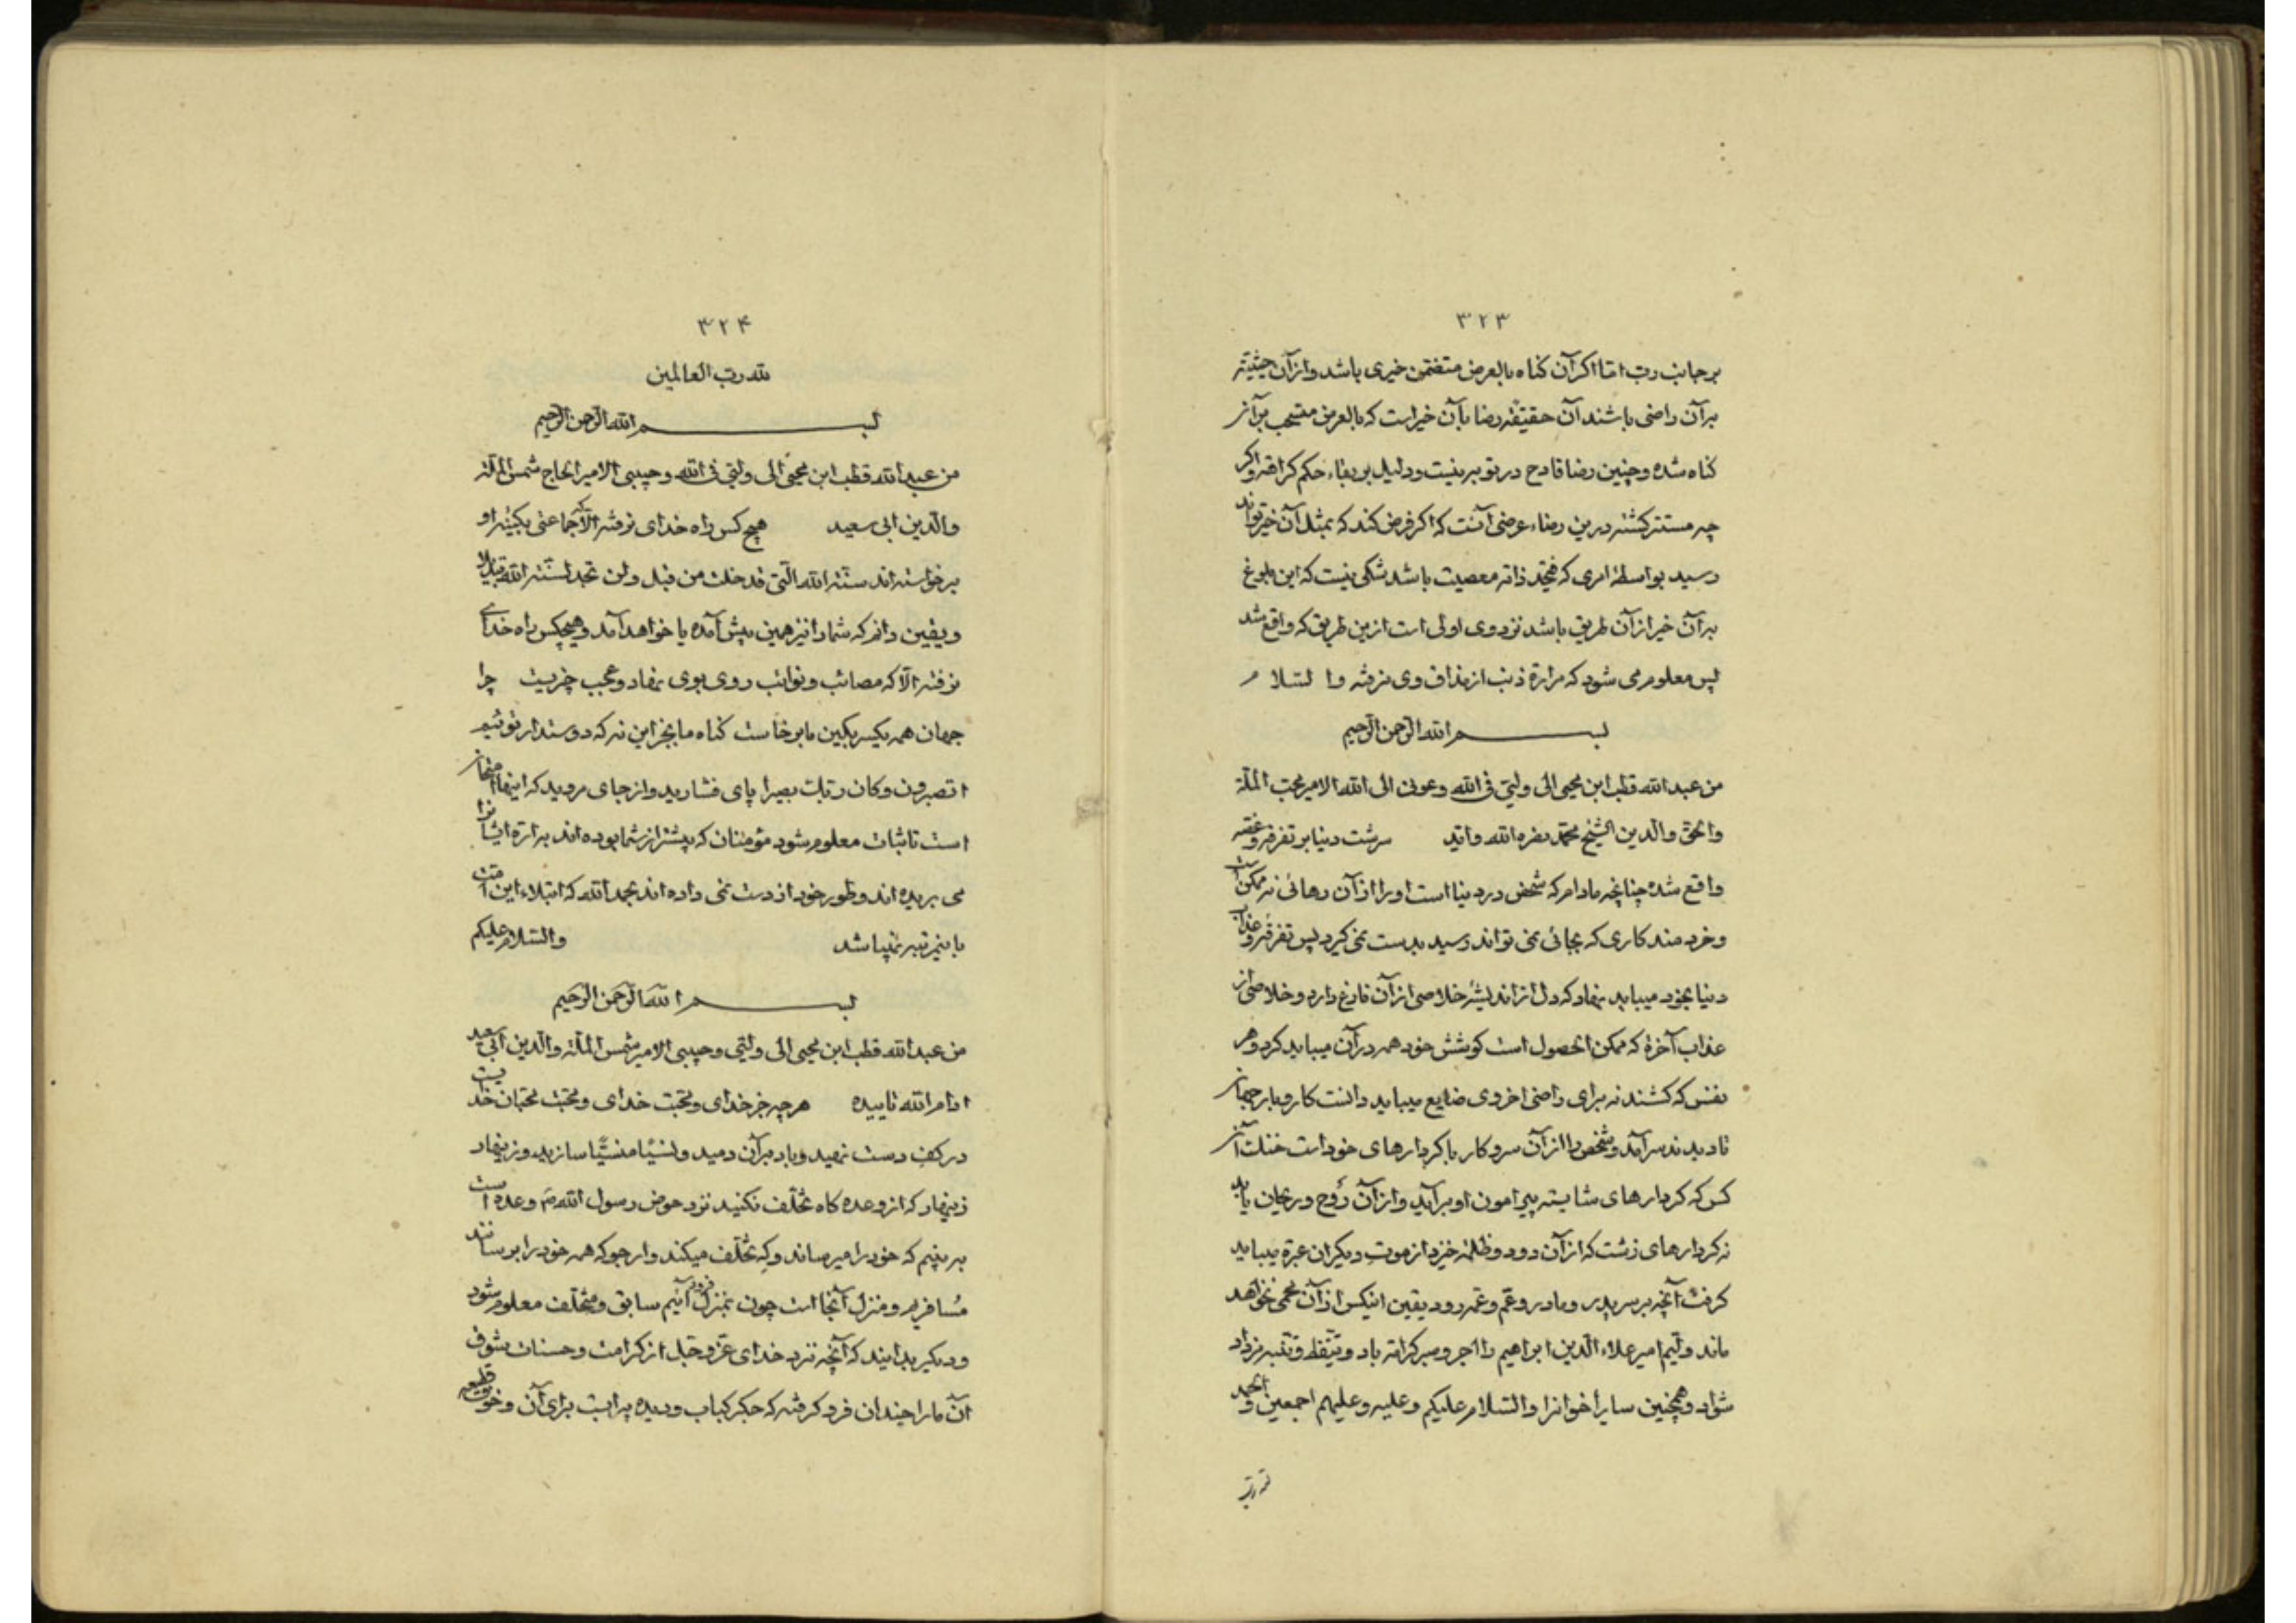 ۳۲۳
بر جانب رب اما اکر آن کناه بالعرض متضمن خیری باشد و از آن حیثیته
بر آن راضی باشند آن حقیقة رضا بآن خیر است که بالعرض مستحب بر آن
کناه شده و چنین رضا قادح در توبه نیست و دلیل بر بقاء حکم کراهة و اکر
چه مستتر کشته درین رضاء عرضی آنست که اکر فرض کند که بمثل آن خیر تواند
رسید بواسطهٔ امری که فی حد ذاته معصیت باشد شکی نیست که این بلوغ
بر آن خیر از آن طریق باشد نزد وی اولی است ازین طریق که واقع شد
پس معلوم می شود که مرارة ذنب از مذاق وی نرفته و السلام
بسم الله الرحمن الرحیم
من عبد الله قطب ابن محیی الی ولیی فی الله و عونی الی الله الامیر محب الملة
والحق والدین الشیخ محمد نصره الله و اید سرشت دنیا بر تفرقه و غصه
واقع شده چنانچه مادام که شخص در دنیا است او را از آن رهائی نه ممکن است
و خردمند کاری که بجائی نمی تواند رسید بدست نمی کیرد پس تفرقه و عذاب
دنیا بخود میباید نهاد که دل از اندیشهٔ خلاصی از آن فارغ دارد و خلاصی از
عذاب آخرة که ممکن الحصول است کوشش خود همه در آن میباید کرد و هر
نفس که کشند نه برای راضی اخروی ضایع میباید دانست کار و بار جهان
تا دیدند سر آمد و شخص را از آن سر و کار با کردارهای خود است خنک آن
کس که کردارهای شایسته پیرامون او برآید و از آن رَوح و ریحان یابد
نه کردارهای زشت که از آن دود و ظلمة خیزد از موت دیکران عبرة میباید
کرفت آنچه بر سر پدر و مادر و عم و عمه رود یقین اینکس از آن محمی نخواهد
ماند ولیم امیر علاء الدین ابراهیم را اجر و صبر کرامة باد و تیقظ و تنبه زیاد
شواد و همچنین سایر اخوانرا والسلام علیکم و علیه و علیهم اجمعین و الحمد
لله رب
۳۲۴
لله رب العالمین
بسم الله الرحمن الرحیم
من عبد الله قطب ابن محیی الی ولیی فی الله و حبیبی الامیر الحاج شمس الملة
والدین ابی سعید هیچ کس راه خدای نرفته الا که جماعتی بکینهٔ او
برخواسته اند سنة الله التی قد خلت من قبل ولن تجد لسنة الله تبدیلا
و یقین دانم که شما را نیز همین پیش آمده یا خواهد آمد و هیچکس راه خدای
نرفته الا که مصائب و نوائب روی بوی نهاد و عجب خریست چرا
جهان همه یکسر بکین ما برخاست کناه ما بجز این نه که دوستدار توئیم
اتصبرون و کان ربک بصیرا پای فشارید و از جای مروید که اینها امتحان
است تا ثبات معلوم شود مؤمنان که پیشتر از شما بوده اند به اره ایشانرا
می بریده اند و طور خود از دست نمی داده اند بحمد الله که ابتلاء این امت
باینمرتبه نمیباشد والسلام علیکم
بسم الله الرحمن الرحیم
من عبد الله قطب ابن محیی الی ولیی و حبیبی الامیر شمس الملة والدین ابی سعید
ادام الله تاییده هر چه جز خدای و محبت خدای و محبت محبان خدا یست
در کف دست نهید و باد بر آن دمید و نسیًا منسیًّا سازید و زینهار
زینهار که از وعده کاه تخلف نکنید نزد حوض رسول الله ص وعده است
به بینیم که خود را میرساند و که تخلف میکند و ارجو که همه خود را برسانند
مسافریم و منزل آنجا است چون بمنزل فرود آئیم سابق و متخلف معلوم شود
و دیکر بدانید که آنچه نزد خدای عز و جل از کرامت و حسنات بشوق
آن ما را چندان فرو کرفته که جکر کباب و دیده پر آبست برای آن و خود